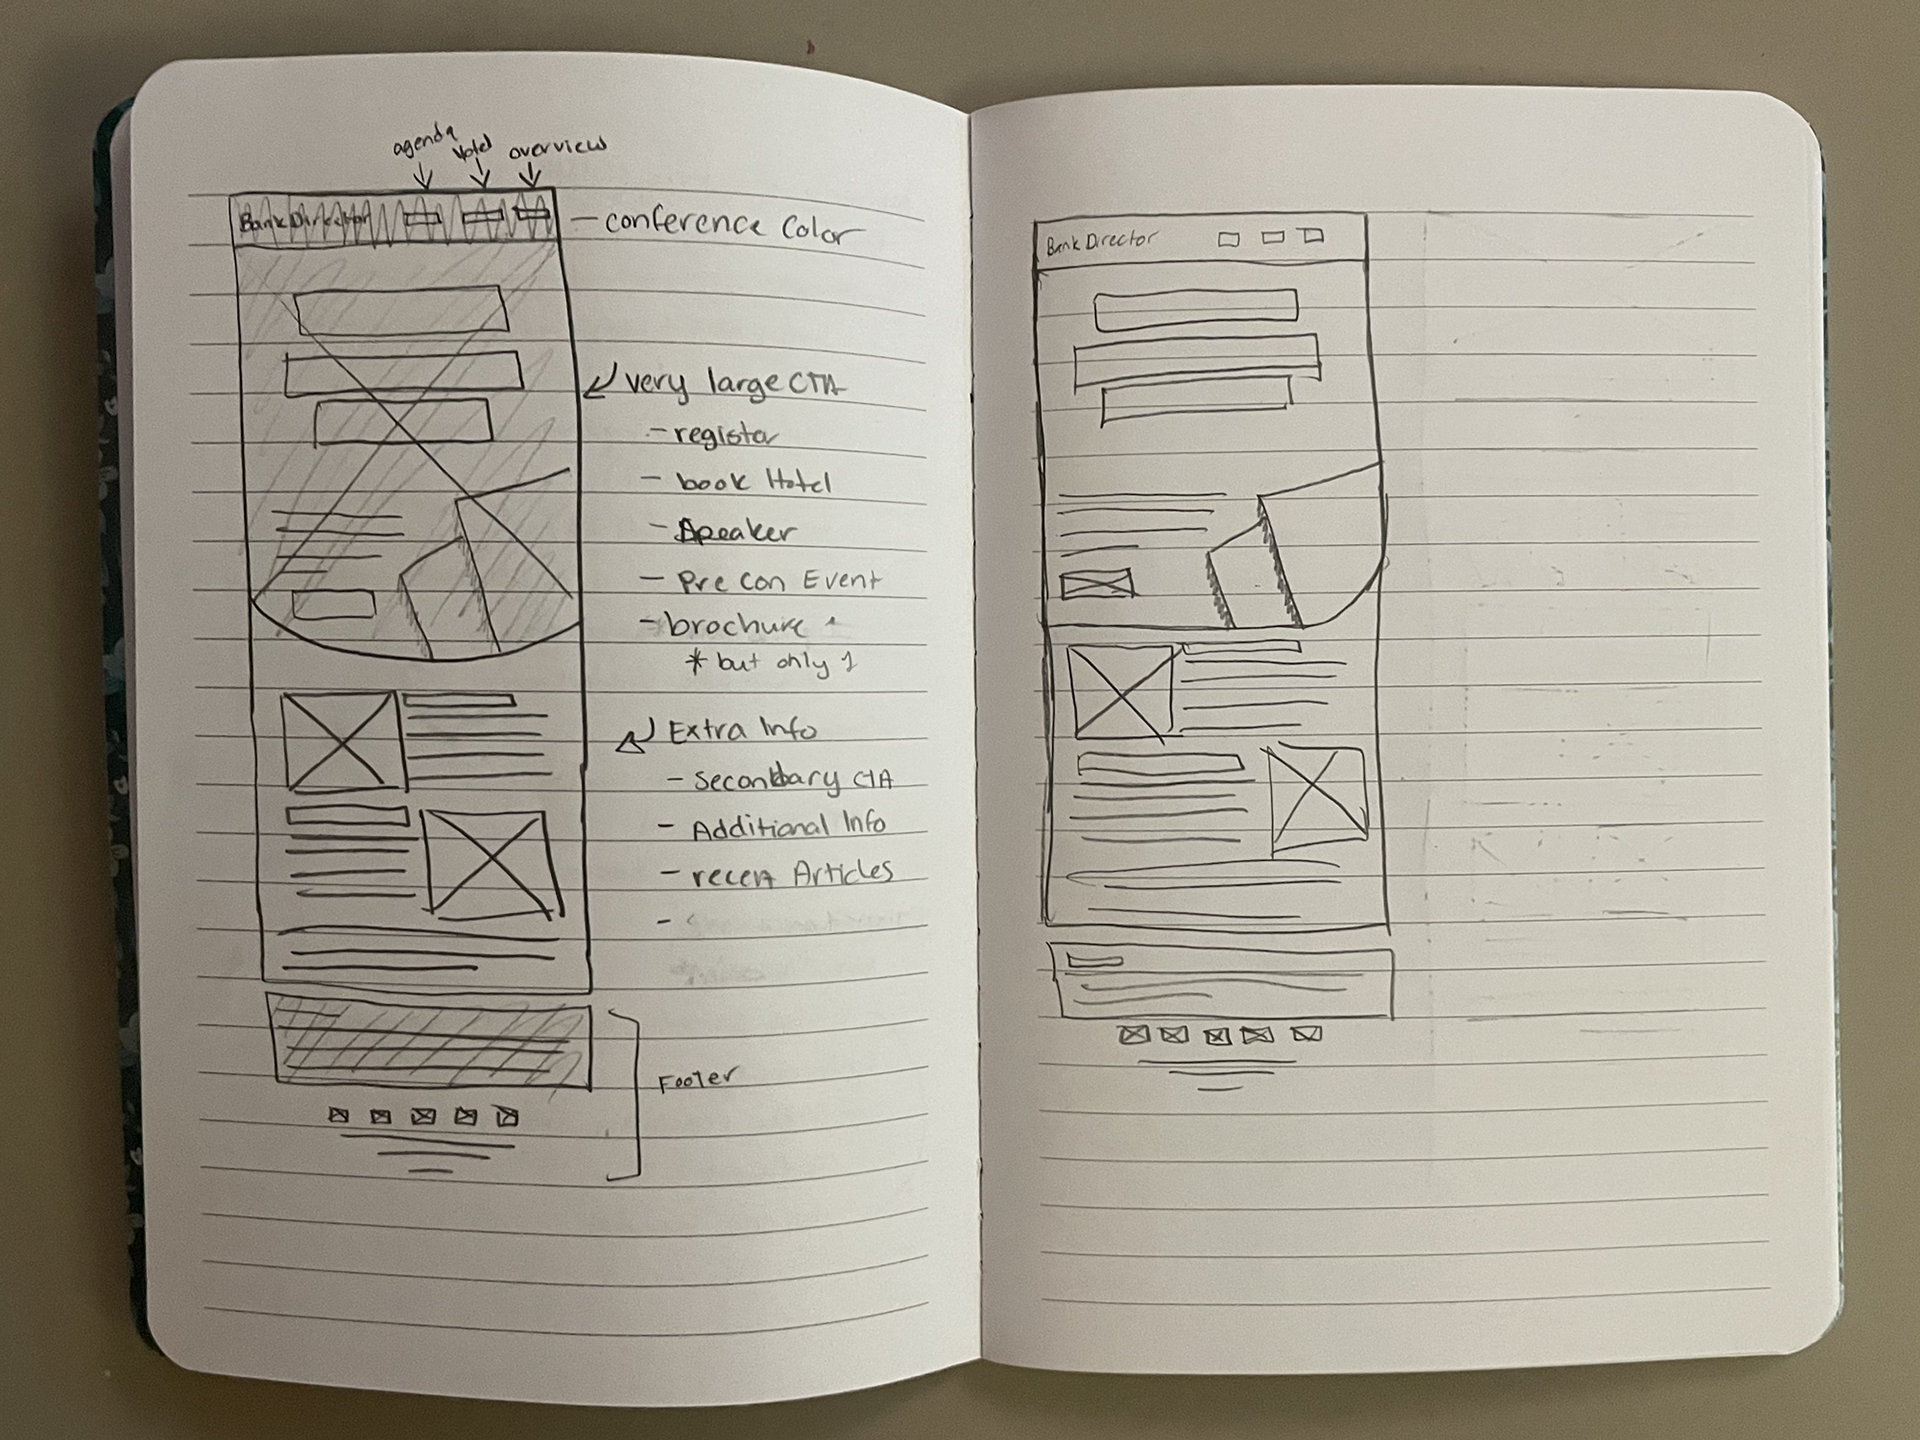 agenda Hotel overview
Bank Director
- conference Color
very large CTA
- register
- book Hotel
- Speaker
- Pre Con Event
- brochure
* but only 1
Extra Info
- Secondary CTA
- Additional Info
- recent Articles
-
Footer
Bank Director